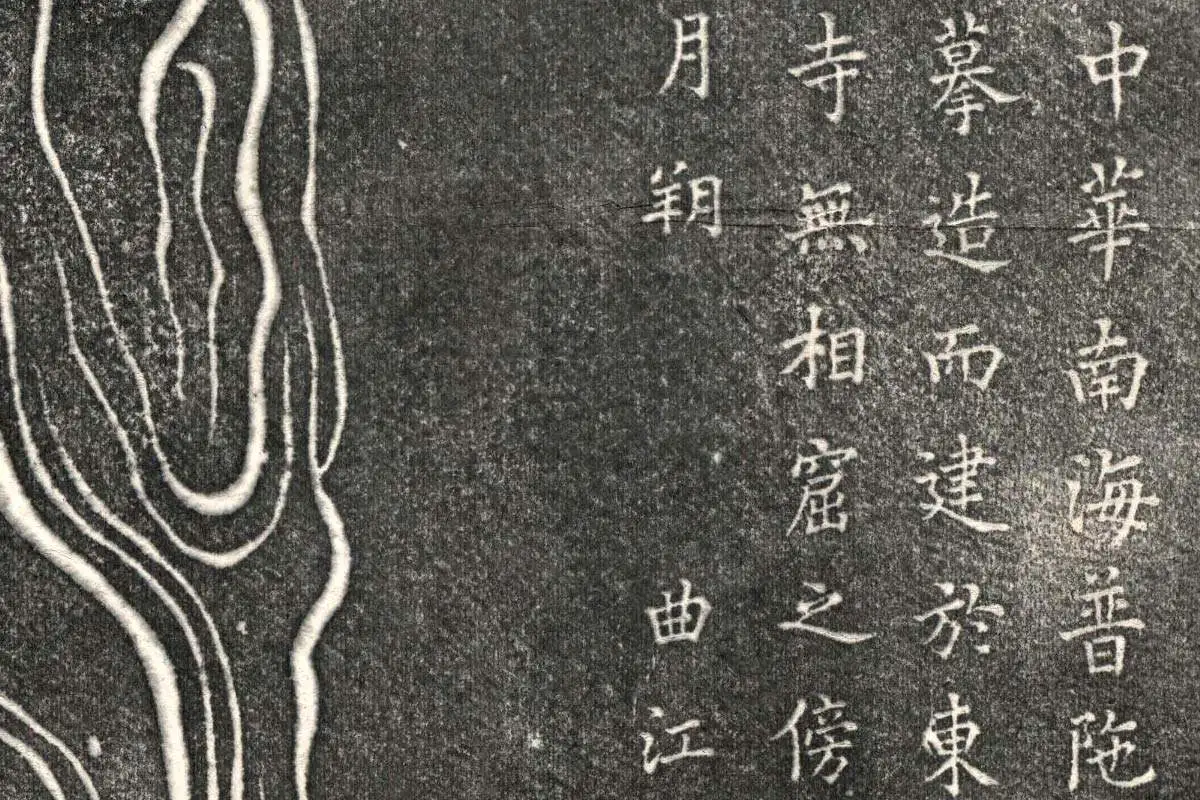 中華南海普陁
摹造而建於東
寺無相窟之傍
月朔 曲江